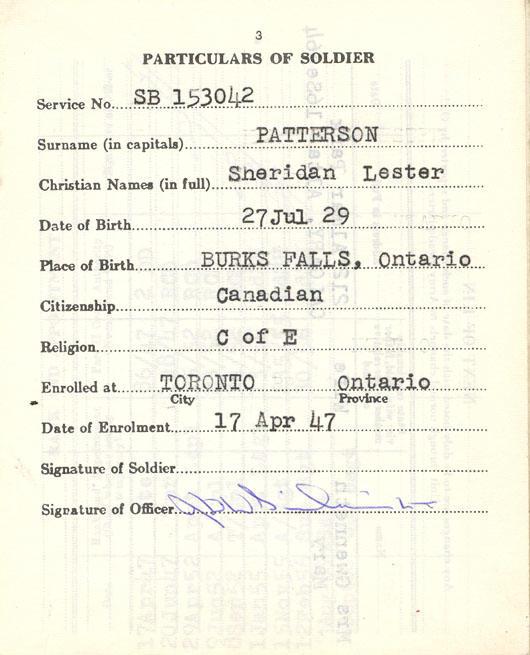 3
PARTICULARS OF SOLDIER
Service No. SB 153042
Surname (in capitals) PATTERSON
Christian Names (in full) Sheridan Lester
Date of Birth 27Jul 29
Place of Birth BURKS FALLS, Ontario
Citizenship Canadian
Religion C of E
Enrolled at TORONTO Ontario
City Province
Date of Enrolment 17 Apr 47
Signature of Soldier
Signature of Officer